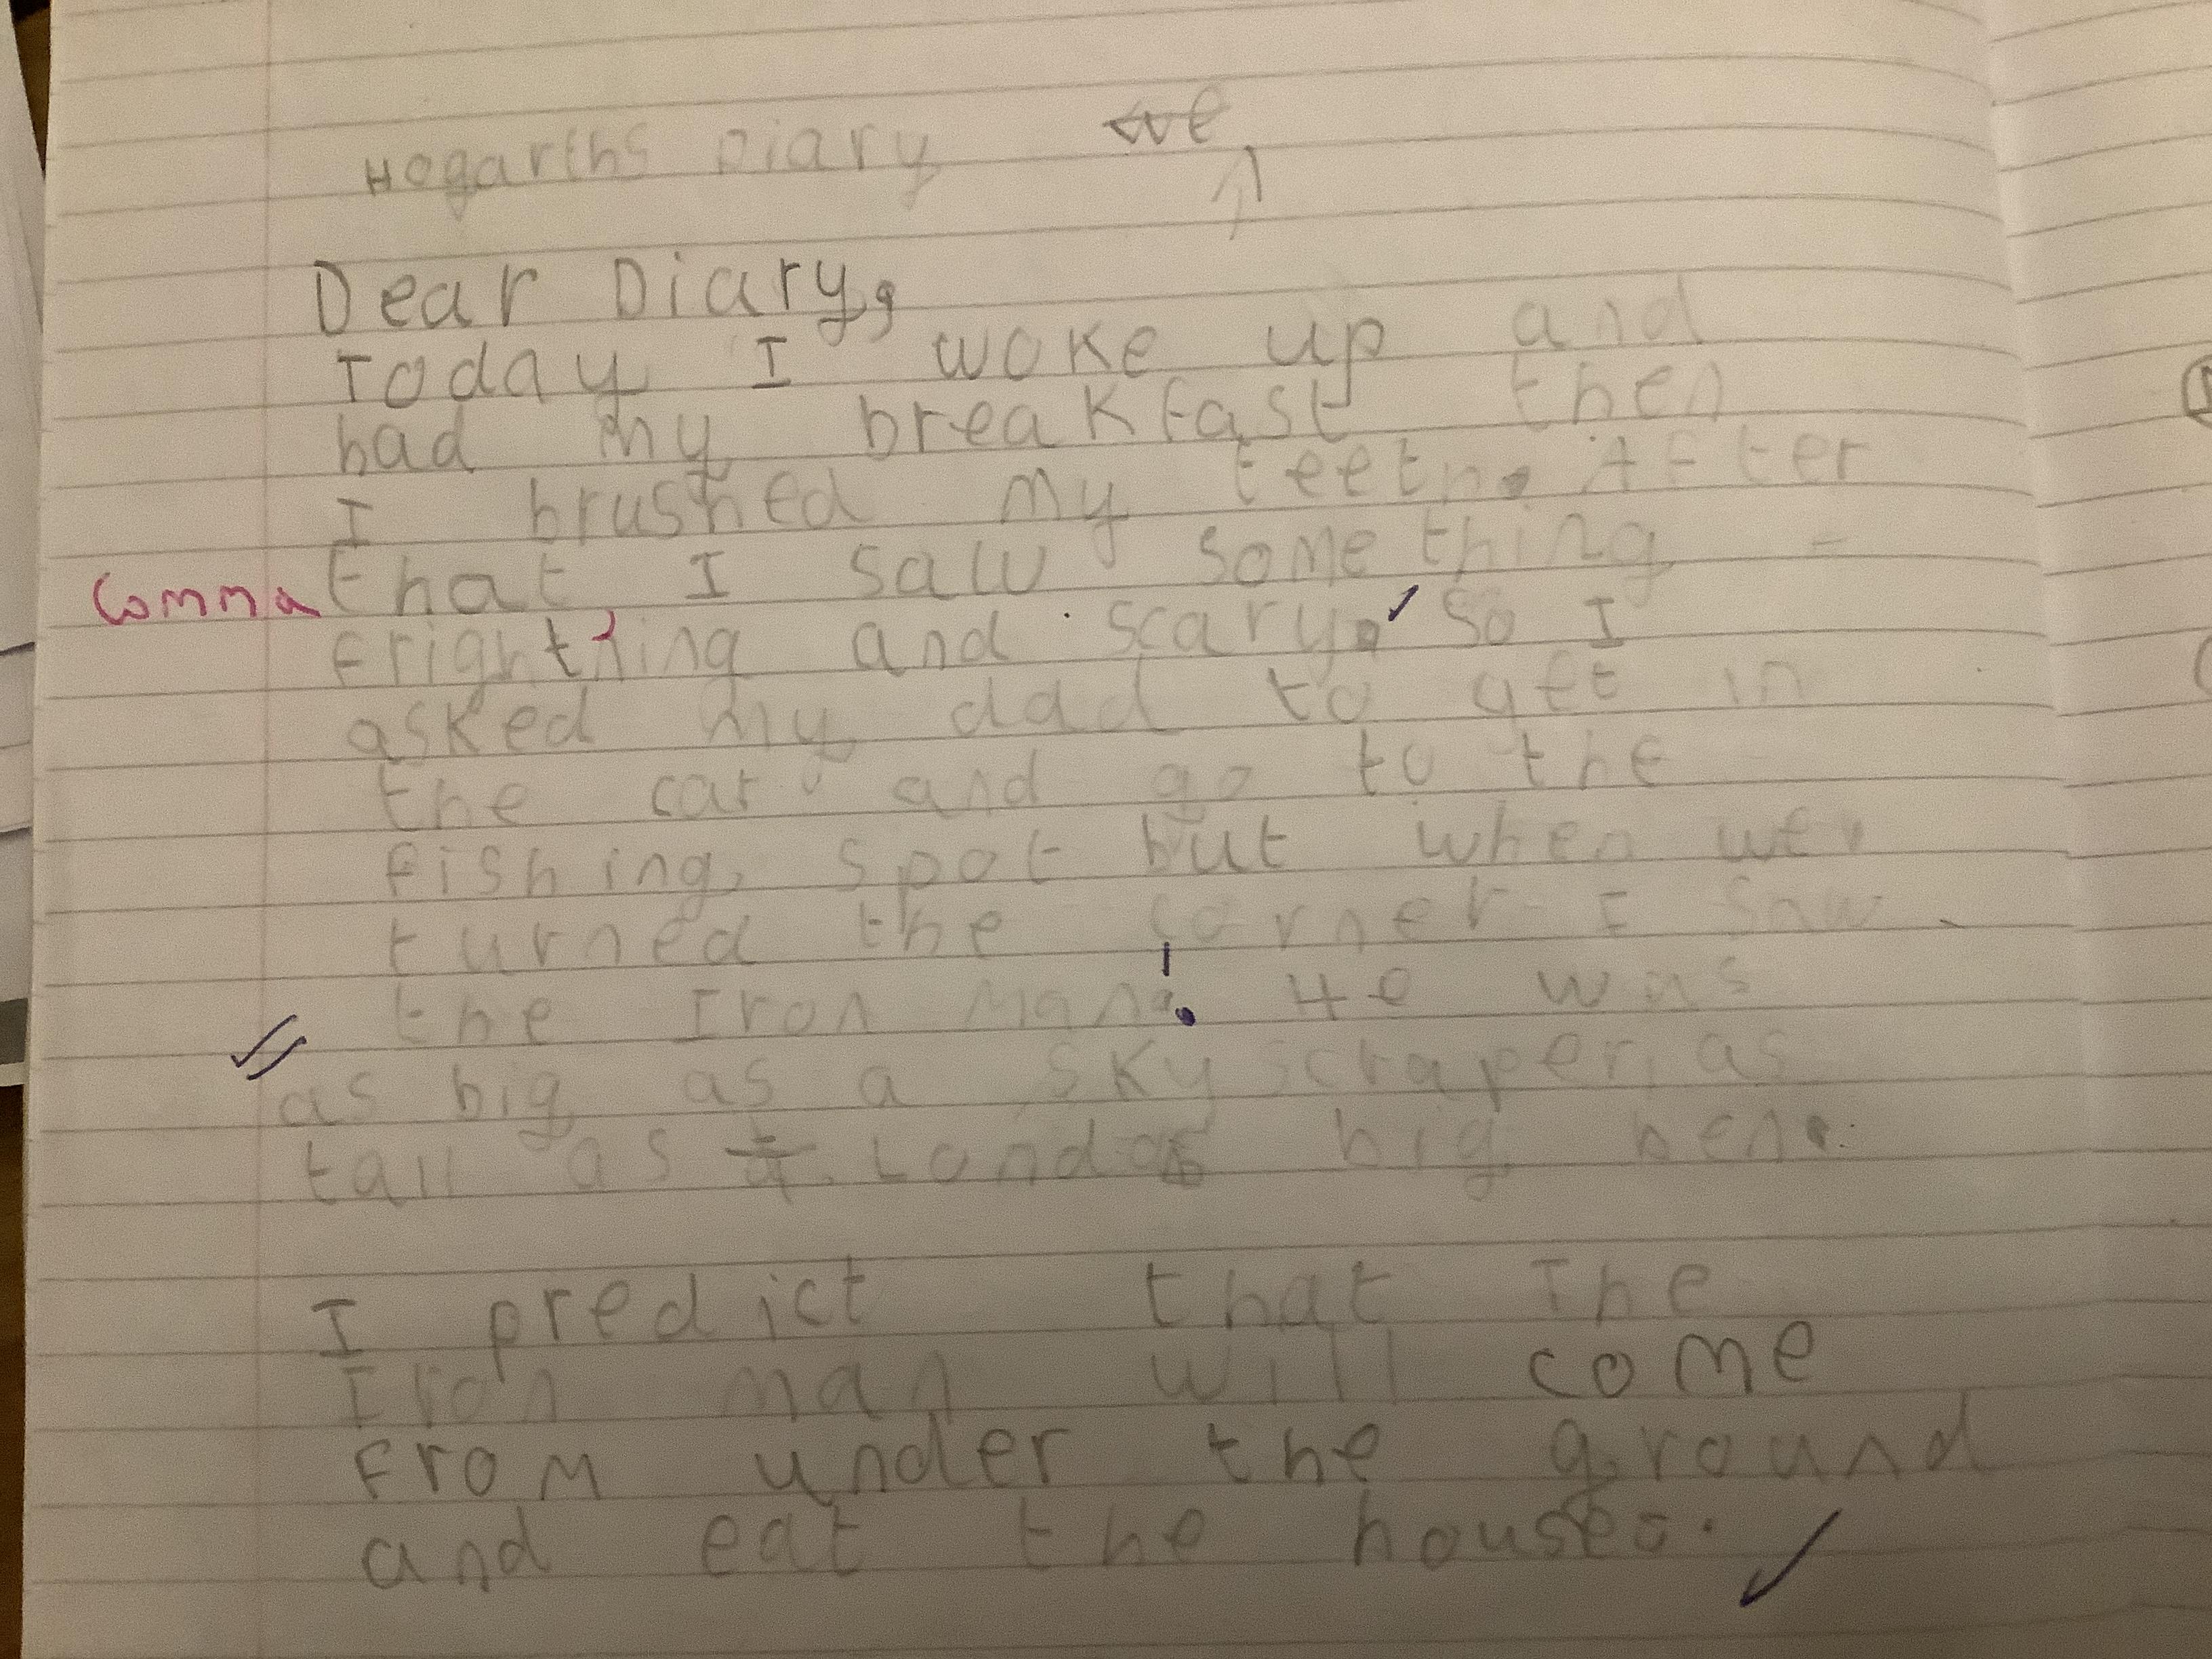 Hogarths Diary
Dear Diary,
Today I woke up and
had my breakfast then
I brushed my teeth. After
Comma that, I saw something
frightning and scary. So I
asked my dad to get in
the car and go to the
fishing spot but when we
turned the corner I saw
the Iron Man! He was
as big as a skyscraper, as
tall as London big ben.
I predict that The
Iron man will come
from under the ground
and eat the houses.